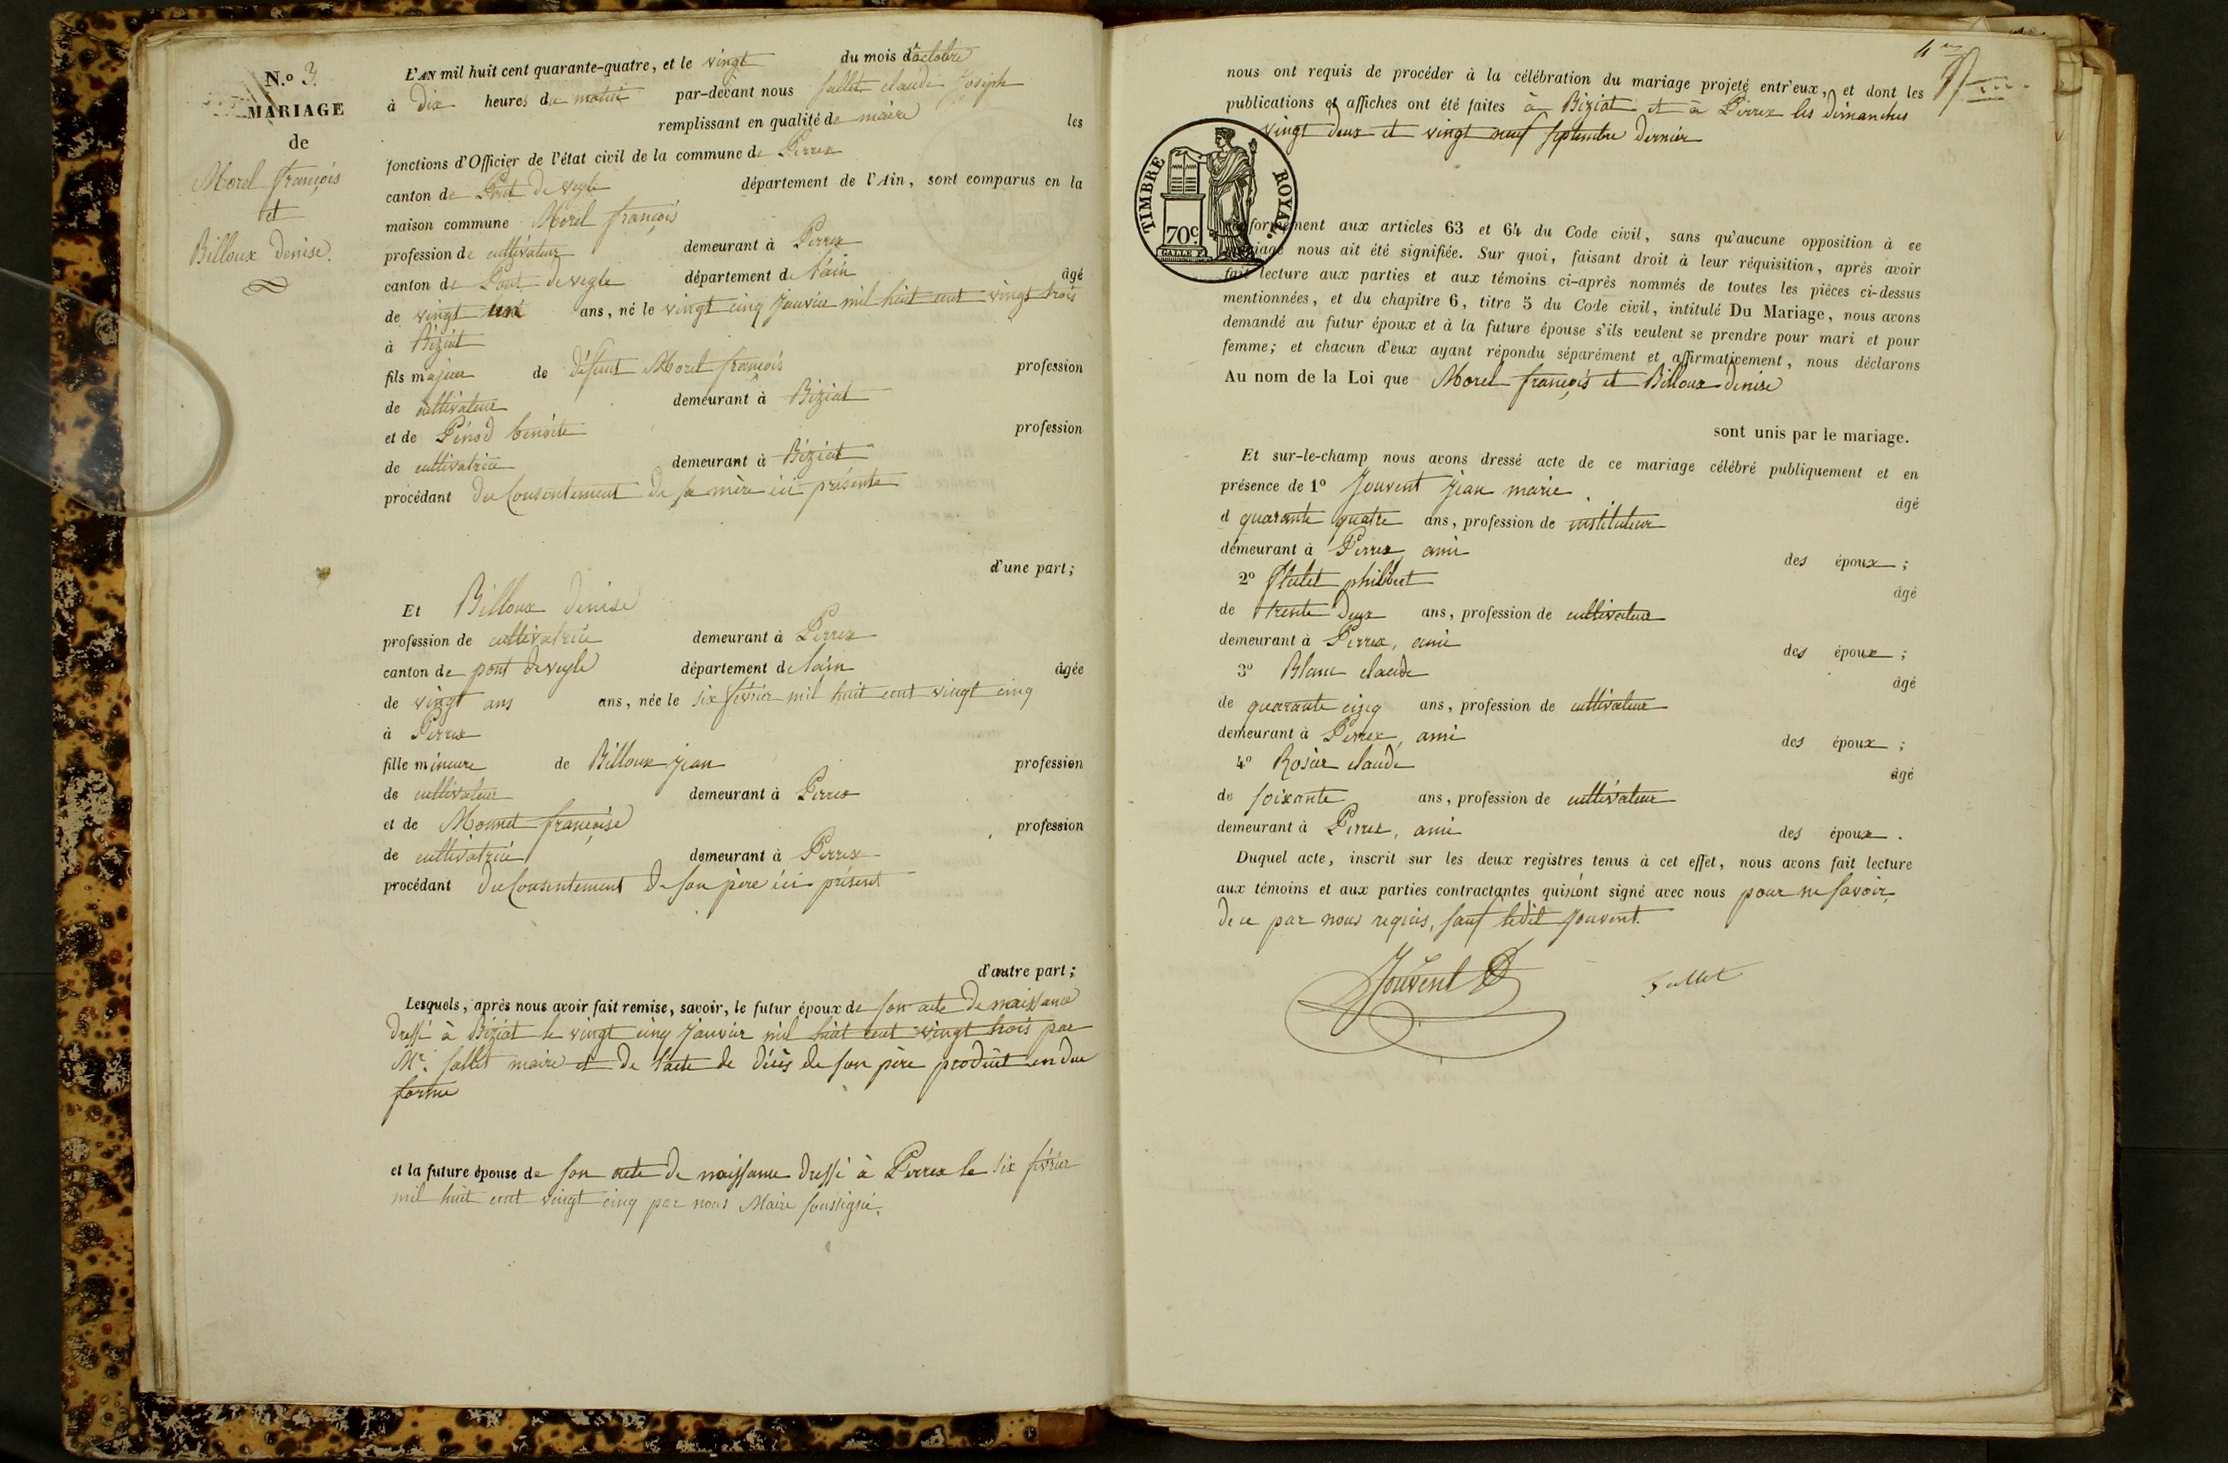 N.o 3.
MARIAGE
de
Morel françois
et
Billoux denise.
L'AN mil huit cent quarante-quatre, et le vingt du mois d'octobre
à dix heures du matin par-devant nous fallet claude Joseph
remplissant en qualité de maire les
fonctions d'Officier de l'état civil de la commune de Perrex
canton de Pont de veyle département de l'Ain, sont comparus en la
maison commune Morel françois
profession de cultivateur demeurant à Perrex
canton de Pont de veyle département de l'ain âgé
de vingt un ans, né le vingt cinq janvier mil huit cent vingt trois
à Biziat
fils majeur de défunt Morel françois profession
de cultivateur demeurant à Biziat
et de Pénod benoite profession
de cultivatrice demeurant à Biziat
procédant du Consentement de sa mère ici présente
d'une part;
Et Billoux denise
profession de cultivatrice demeurant à Perrex
canton de pont deveyle département de l'ain âgée
de vingt ans ans, née le six février mil huit cent vingt cinq
à Perrex
fille mineure de Billoux jean profession
de cultivateur demeurant à Perrex
et de Monnet françoise profession
de cultivatrice demeurant à Perrex
procédant du Consentement de son père ici présent
d'autre part;
Lesquels, après nous avoir fait remise, savoir, le futur époux de son acte de naissance
dressé à Biziat le vingt cinq janvier mil huit cent vingt trois par
Mr. fallet maire et de l'acte de décès de son père produit en due
forme
et la future épouse de son acte de naissance dressé à Perrex le six février
mil huit cent vingt cinq par nous Maire soussigné.
nous ont requis de procéder à la célébration du mariage projeté entr'eux, et dont les
publications et affiches ont été faites à Biziat et à Perrex les dimanches
vingt deux et vingt neuf septembre dernier
TIMBRE ROYAL.
70c
conformément aux articles 63 et 64 du Code civil, sans qu'aucune opposition à ce
mariage nous ait été signifiée. Sur quoi, faisant droit à leur réquisition, après avoir
fait lecture aux parties et aux témoins ci-après nommés de toutes les pièces ci-dessus
mentionnées, et du chapitre 6, titre 5 du Code civil, intitulé Du Mariage, nous avons
demandé au futur époux et à la future épouse s'ils veulent se prendre pour mari et pour
femme; et chacun d'eux ayant répondu séparément et affirmativement, nous déclarons
Au nom de la Loi que Morel françois et Billoux denise
sont unis par le mariage.
Et sur-le-champ nous avons dressé acte de ce mariage célébré publiquement et en
présence de 1o Jouvent jean marie âgé
d quarante quatre ans, profession de instituteur
demeurant à Perrex, ami des époux;
2o philibert âgé
de trente deux ans, profession de cultivateur
demeurant à Perrex, ami des époux;
3o Blanc claude âgé
de quarante cinq ans, profession de cultivateur
demeurant à Perrex, ami des époux;
4o Rosier claude âgé
de soixante ans, profession de cultivateur
demeurant à Perrex, ami des époux.
Duquel acte, inscrit sur les deux registres tenus à cet effet, nous avons fait lecture
aux témoins et aux parties contractantes qui n'ont signé avec nous pour ne savoir,
de ce par nous requis, sauf ledit Jouvent.
Jouvent fallet